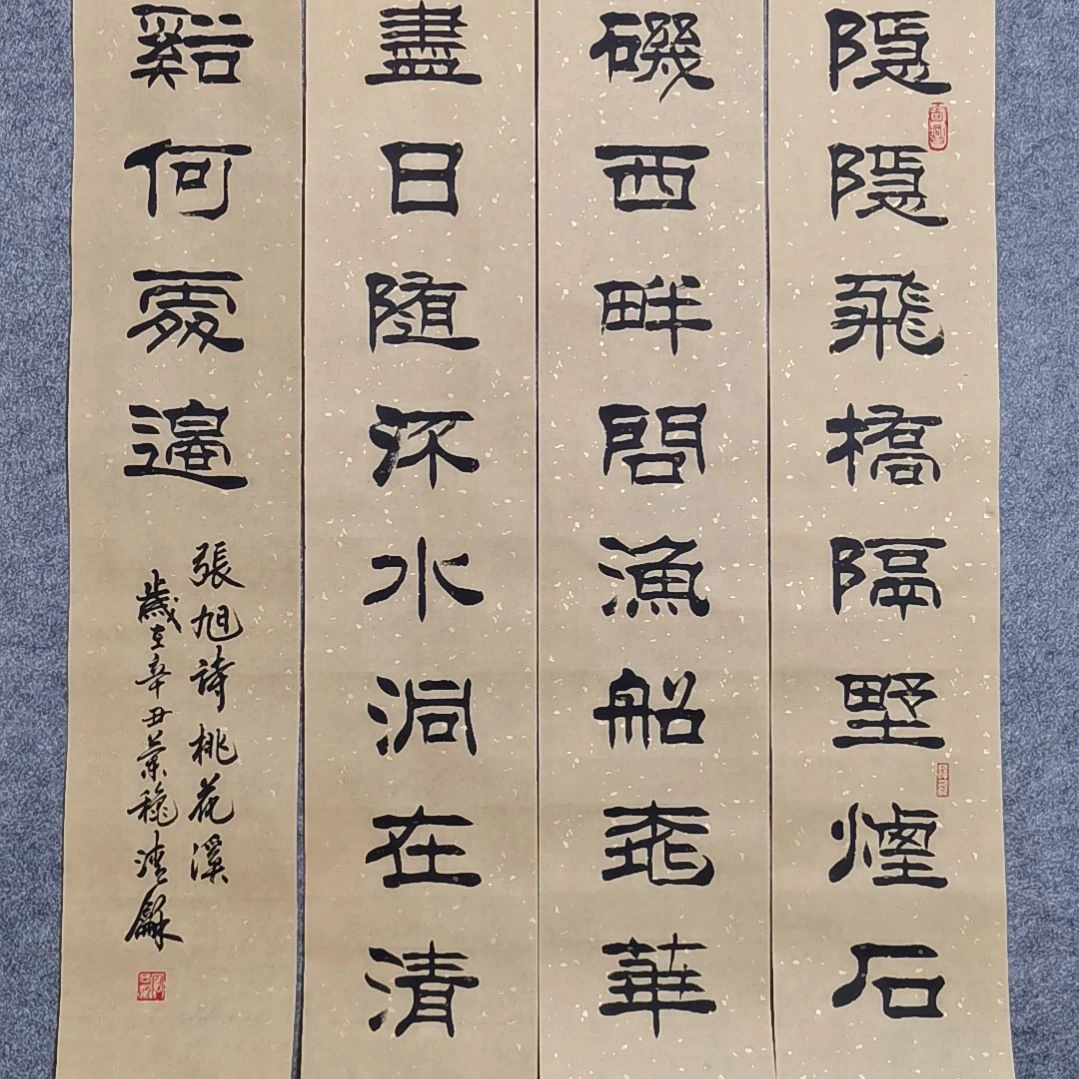 隱隱飛橋隔墅煙石
磯西畔問漁船桃華
盡日随流水洞在清
谿何處邊
張旭詩桃花溪
歲在辛丑